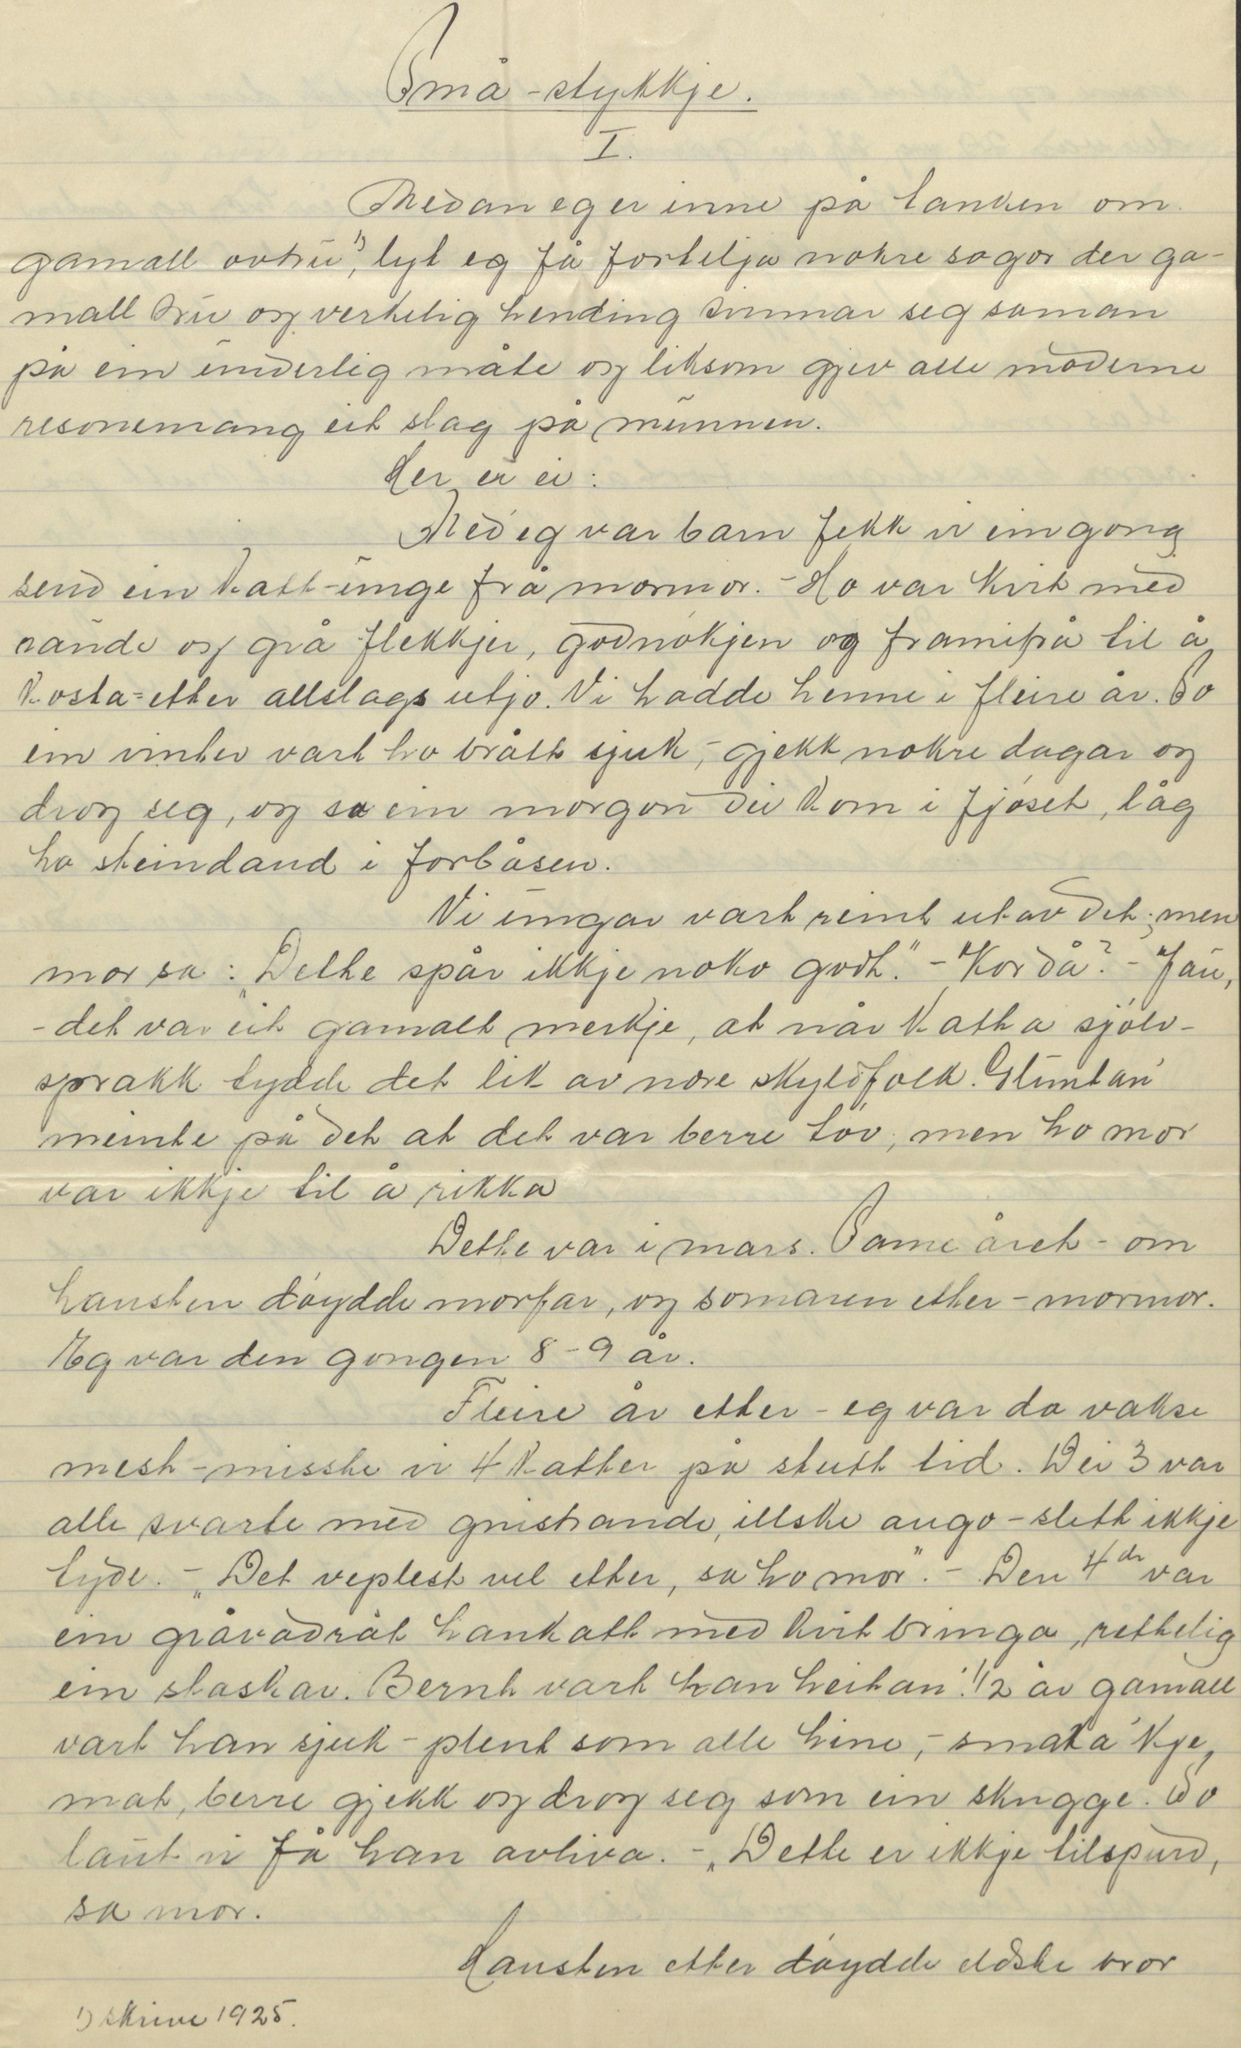 Små-stykkje.
I.
Medan eg er inne på tanken om
gamall ovtru 1), lyt eg få fortelja nokre sogor der ga-
mall tru og verkelig hending tvinnar seg saman
på ein underlig måte og liksom gjev alle moderne
resonemang eit slag på munnen.
Her er ei:
Med eg var barn fekk vi eingong
send ein katt-unge frå mormor. - Ho var kvit med
raude og grå flekkjer, godnokjen og framifrå til å
kosta etter allslags utjo. Vi hadde henne i fleire år. So
ein vinter vart ho brått sjuk, - gjekk nokre dagar og
drog seg, og so ein morgon dei kom i fjøset, låg
ho steindaud i forbåsen.
Vi ungar vart reint utav det; men
mor sa: "Dette spår ikkje noko godt." - "Kor då? - "Jau,
- det var eit gamalt merkje, at når katta sjølv-
sprakk tydde det lik av nære skyldfolk. Gluntan
meinte på det at det var berre tøv, men ho mor
var ikkje til å rikka
Dette var i mars. Same året - om
hausten døydde morfar, og somaren etter - mormor.
Eg var den gongen 8-9 år.
Fleire år etter - eg var då vakse
mest - misste vi 4 katter på stutt tid. Dei 3 var
alle svarte med gnistrande, illske augo - slett ikkje
tyde. - "Det veplest vel etter, sa ho mor". - Den 4de var
ein gråvadrat hankatt med kvit bringa, rettelig
ein staskar. Bernt vart han heitan'. 1/2 år gamall
vart han sjuk - plent som alle hine, - smaka' kje
mat, berre gjekk og drog seg som ein skugge. So
laut vi få han avliva. - "Dette er ikkje tilspurd,
sa mor.
Hausten etter døydde eldste bror
1) skrive 1925.